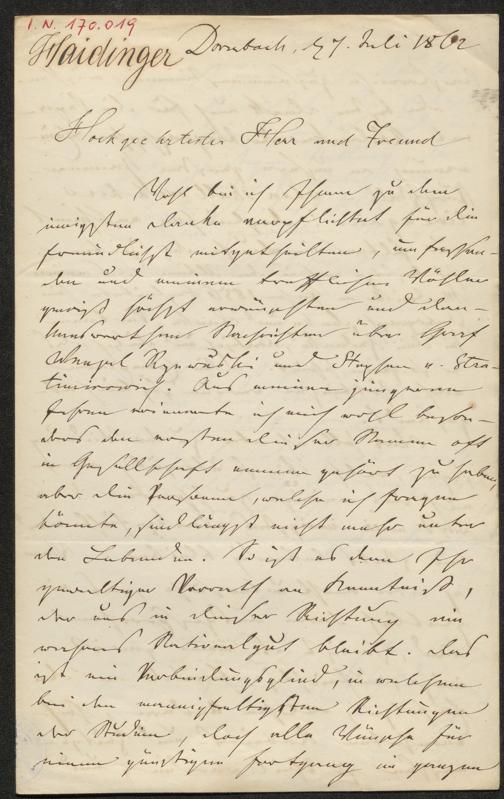 I. N. 170.019
Haidinger
Dornbach, d. 7. Juli 1862
Hochgeehrtester Herr und Freund
Wohl bin ich Ihnen zu dem
innigsten Danke verpflichtet für die
freundlichst mitgetheilten, umfassen-
den und meinem trefflichen Wöhler
gewiß höchst erwünschten und dan-
kenswerthen Nachrichten über Graf
Wenzel Rzewuski und Stephan v. Stra-
timirowich. Aus meinen jüngeren
Jahren erinnerte ich mich wohl beson-
ders den ersten dieser Namen oft
in Gesellschaft nennen gehört zu haben,
aber die Personen, welche ich fragen
könnte, sind längst nicht mehr unter
den Lebenden. So ist es denn Ihr
gewaltiger Vorrath an Kenntniß,
der uns in dieser Richtung ein
wahres Nationalgut bleibt. Das
ist ein Verbindungsglied, in welchem
bei den mannigfaltigsten Richtungen
der Studien, doch alle Wünsche für
einen günstigen Fortgang im ganzen